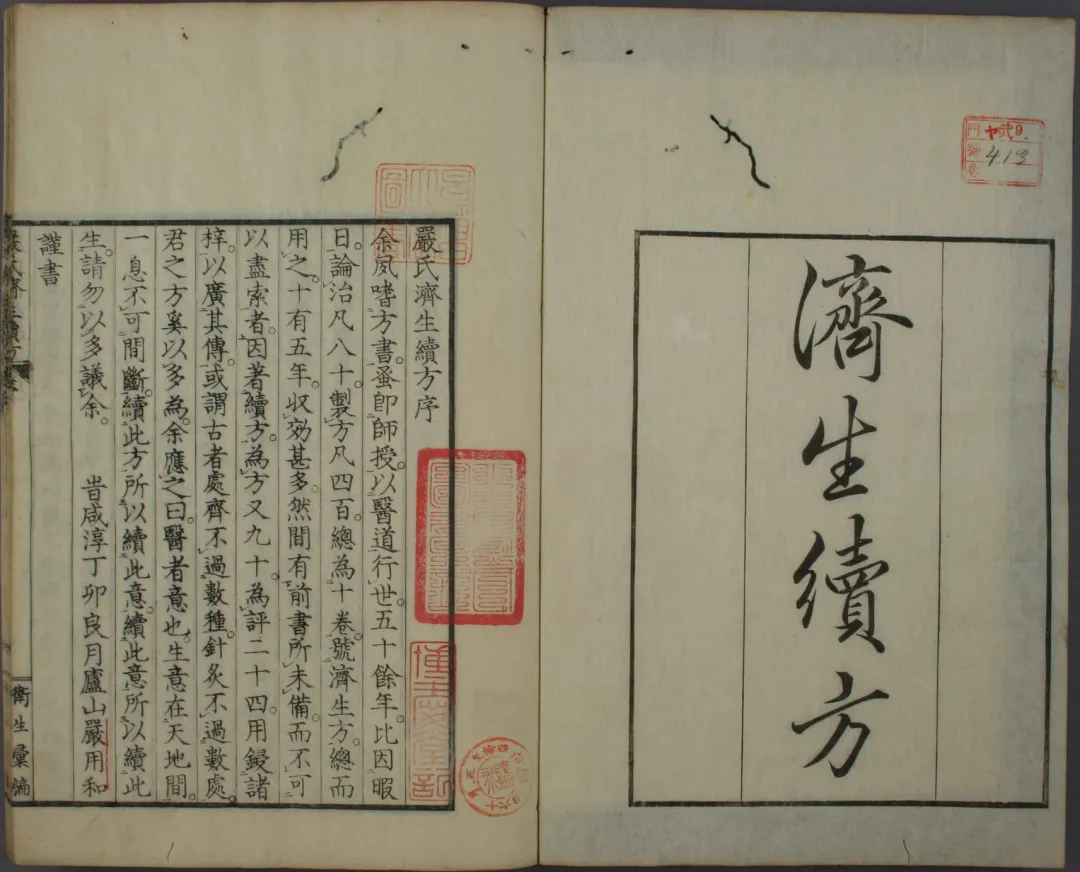 濟生續方
門
ヤ武9.
413
嚴氏濟生續方序
余夙嗜方書。蚤卽師授。以醫道行世。五十餘年。比因暇
日。論治凡八十。製方凡四百。總為十卷。號濟生方。總而
用之。十有五年。收効甚多。然間有前書所未備。而不可
以盡索者。因著續方。為方又九十。為評二十四。用鋟諸
梓。以廣其傳。或謂古者處齊不過數種。針灸不過數處。
君之方奚以多為。余應之曰。醫者意也。生意在天地間。
一息不可間斷。續此方所以續此意。續此意所以續此
生。請勿以多議余。 旹咸淳丁卯良月廬山嚴用和
謹書
衛生彙編